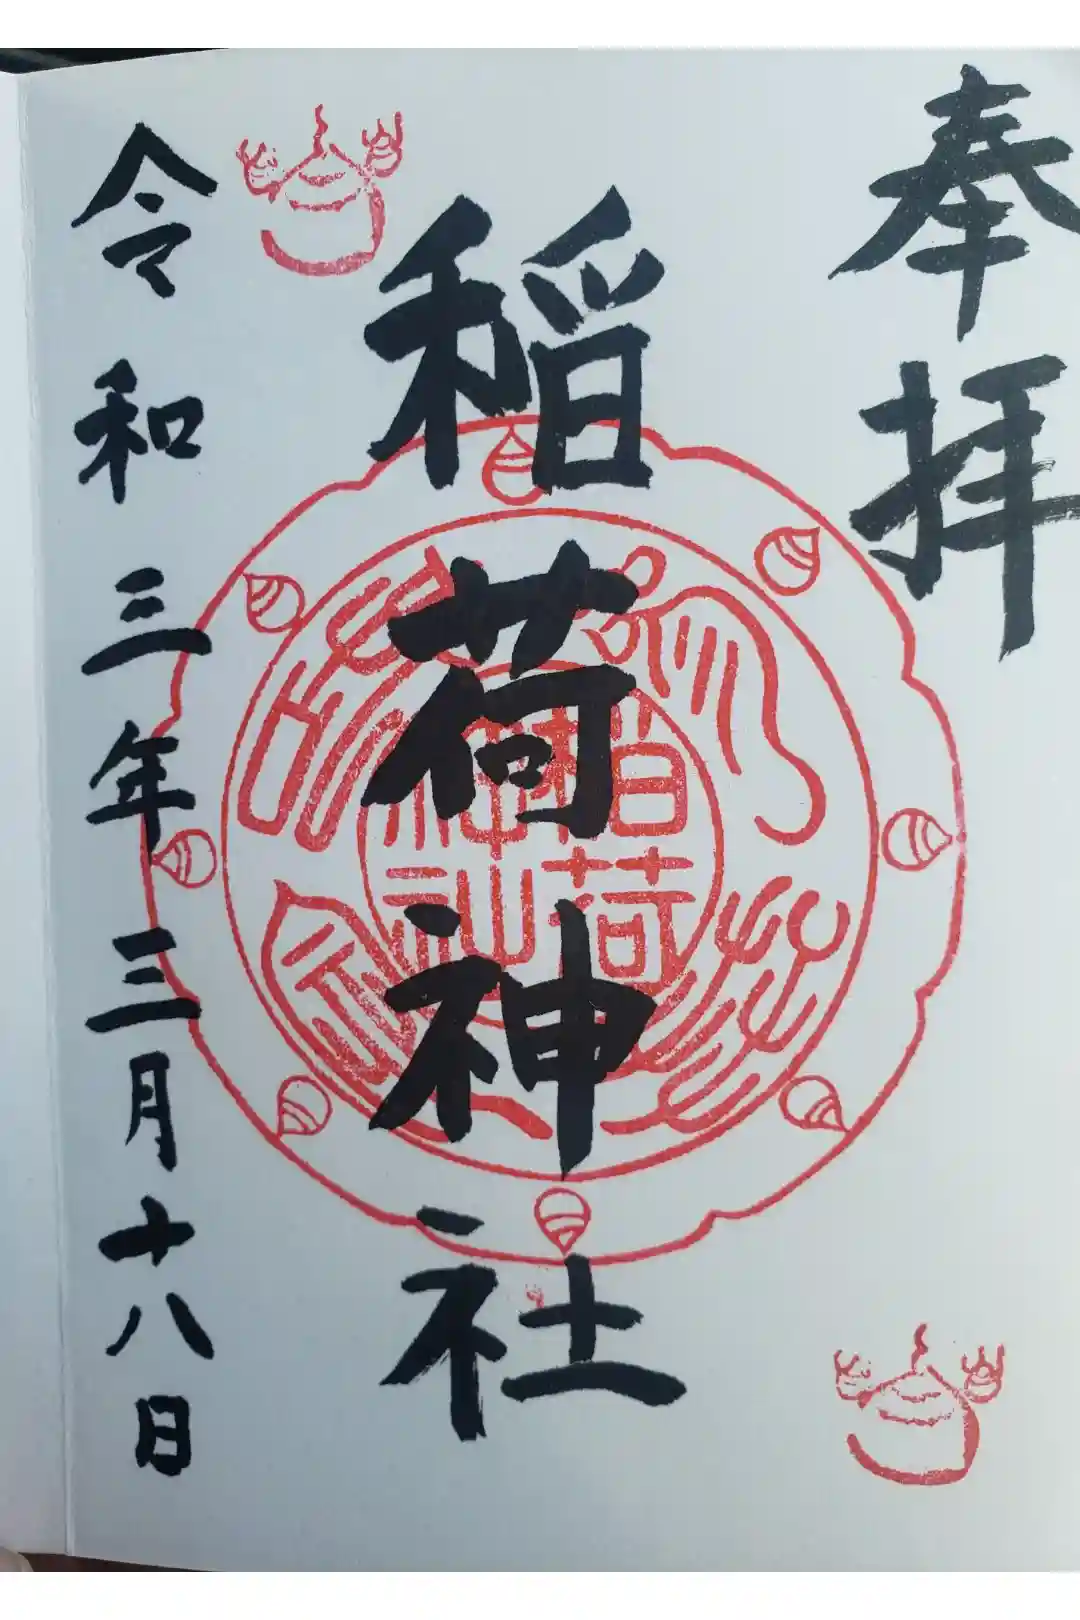 奉拝
稲荷神社
稲荷
神社
令和三年三月十八日